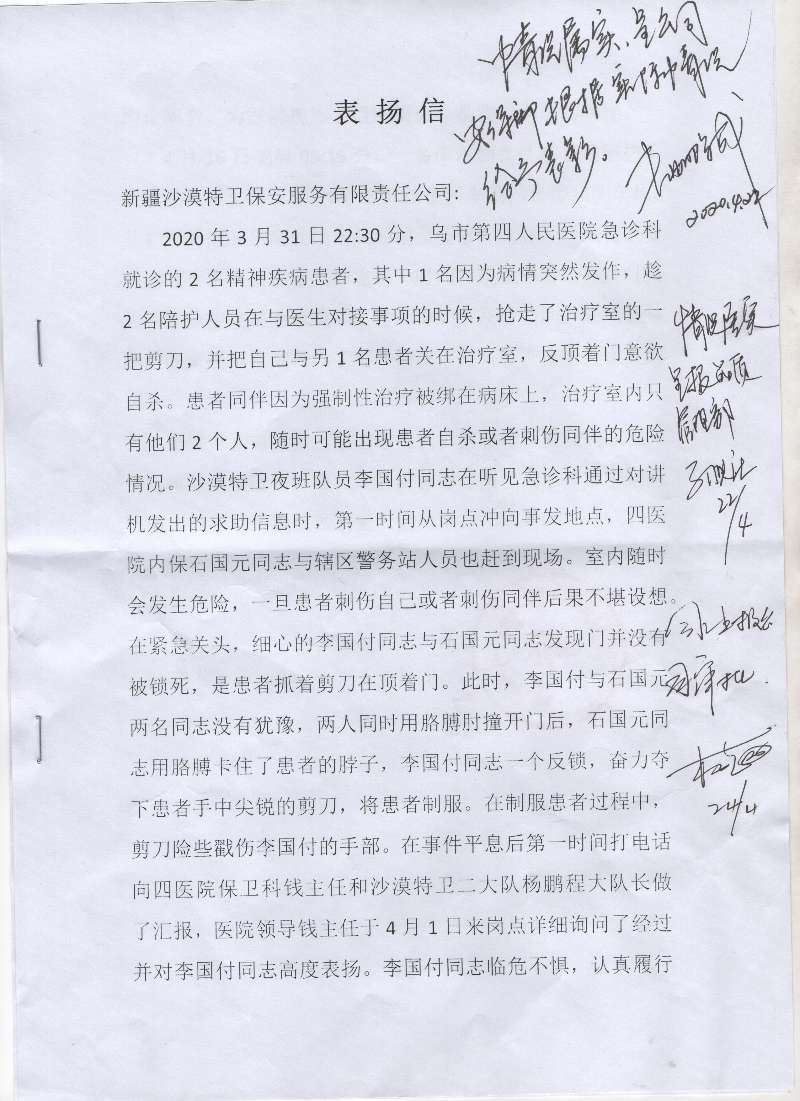 情况属实、呈公司
安保部根据实际情况
给予表彰。
2020.4.22
表 扬 信
新疆沙漠特卫保安服务有限责任公司:
2020 年 3 月 31 日 22:30 分，乌市第四人民医院急诊科
就诊的 2 名精神疾病患者，其中 1 名因为病情突然发作，趁
2 名陪护人员在与医生对接事项的时候，抢走了治疗室的一
把剪刀，并把自己与另 1 名患者关在治疗室，反顶着门意欲
自杀。患者同伴因为强制性治疗被绑在病床上，治疗室内只
有他们 2 个人，随时可能出现患者自杀或者刺伤同伴的危险
情况。沙漠特卫夜班队员李国付同志在听见急诊科通过对讲
机发出的求助信息时，第一时间从岗点冲向事发地点，四医
院内保石国元同志与辖区警务站人员也赶到现场。室内随时
会发生危险，一旦患者刺伤自己或者刺伤同伴后果不堪设想。
在紧急关头，细心的李国付同志与石国元同志发现门并没有
被锁死，是患者抓着剪刀在顶着门。此时，李国付与石国元
两名同志没有犹豫，两人同时用胳膊肘撞开门后，石国元同
志用胳膊卡住了患者的脖子，李国付同志一个反锁，奋力夺
下患者手中尖锐的剪刀，将患者制服。在制服患者过程中，
剪刀险些戳伤李国付的手部。在事件平息后第一时间打电话
向四医院保卫科钱主任和沙漠特卫二大队杨鹏程大队长做
了汇报，医院领导钱主任于 4 月 1 日来岗点详细询问了经过
并对李国付同志高度表扬。李国付同志临危不惧，认真履行
情况属实
呈报品质
管理部
22/4
24/4